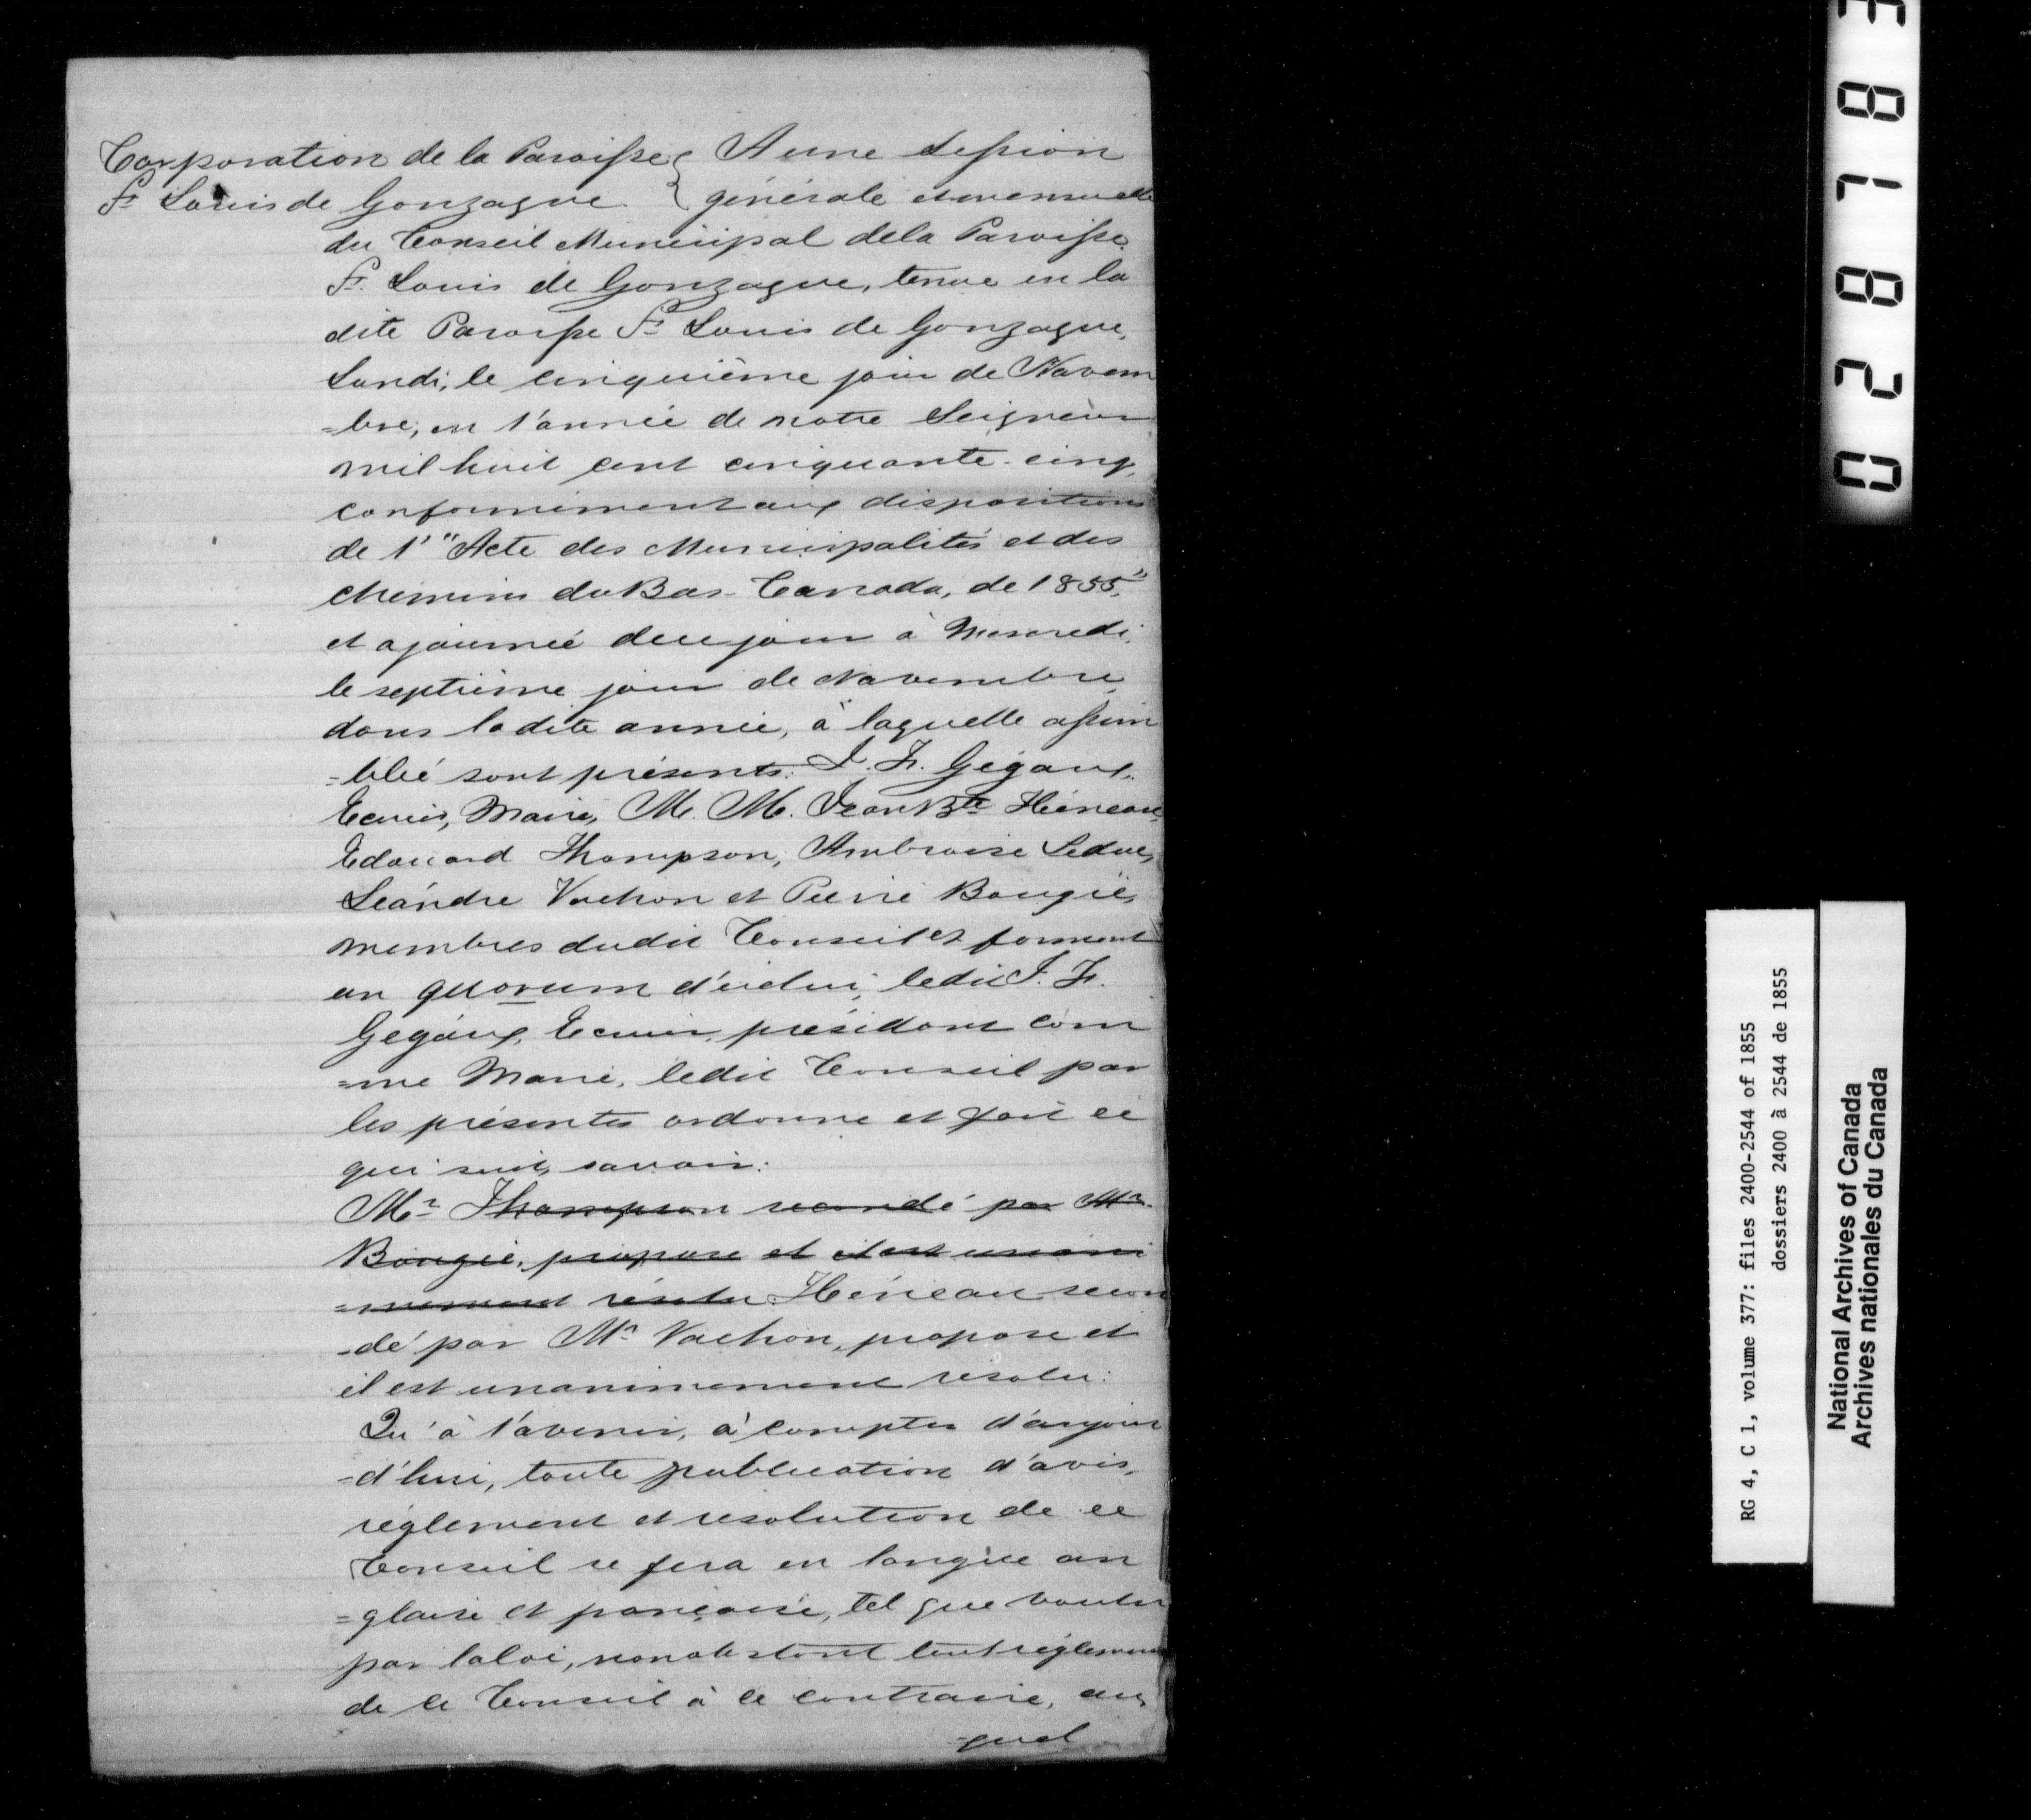 Corporation de la Paroisse { A une Session
St Louis de Gonzague { générale et mensuelle
du Conseil Municipal de la Paroisse
St. Louis de Gonzague, tenue en la
dite Paroisse St Louis de Gonzague,
Lundi, le cinquième jour de Novem
=bre, en l'année de notre Seigneur
mil huit cent cinquante-cinq,
conformément aux dispositions
de l'"Acte des Municipalités et des
chemins du Bas-Canada, de 1855,"
et ajournée de ce jour à Mercredi,
le septième jour de Novembre,
dans la dite année, à laquelle assem
=blée sont présents: J. F. Gégoux,
Ecuier, Maire, M. M. Jean Bte Héneau,
Edouard Thompson, Ambroise Leduc,
Léandre Vachon et Pierre Bougie,
membres dudit Conseil et formant
un quorum d'icelui, ledit J. F.
Gégoux, Ecuier, présidant com
=me Maire, ledit Conseil par
les présentes ordonne et fait ce
qui suit, savoir:
Mr Thompson secondé par Mr
Bougie, propose et il est unani
=mement résolu: Héneau secon
-dé par Mr Vachon, propose et
il est unanimement résolu:
Qu'à l'avenir, à compter d'aujour
=d'hui, toute publication d'avis,
réglement et résolution de ce
Conseil se fera en langue an
=glaise et française, tel que voulu
par la loi, nonobstant tout réglement
de ce Conseil à ce contraire, au
=quel
028783
RG 4, C 1, volume 377: files 2400-2544 of 1855
dossiers 2400 à 2544 de 1855
National Archives of Canada
Archives nationales du Canada